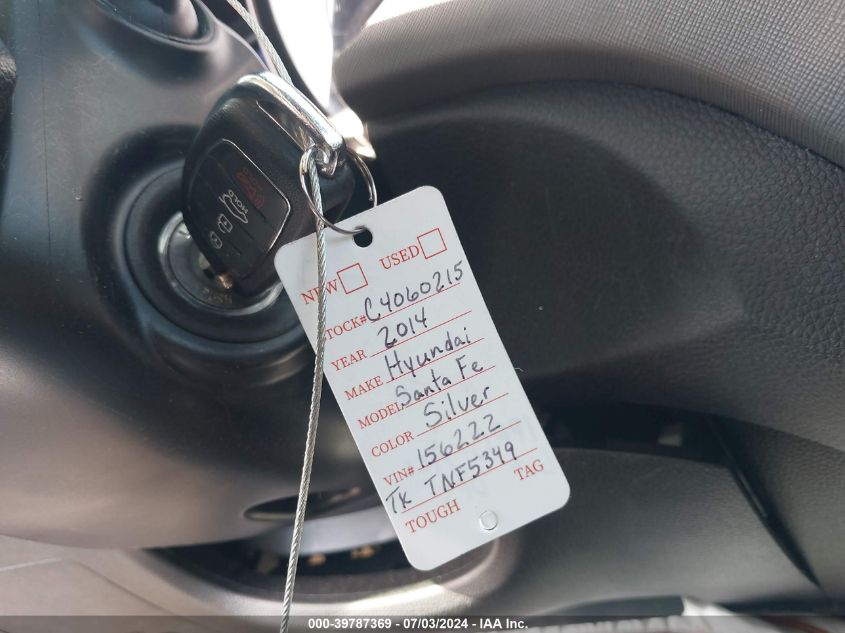 HOLD
NEW USED
STOCK# C4060215
YEAR 2014
MAKE Hyundai
MODEL Santa Fe
COLOR Silver
VIN# 156222
TX TNF5349
TOUGH TAG
000-39787369 - 07/03/2024 - IAA Inc.